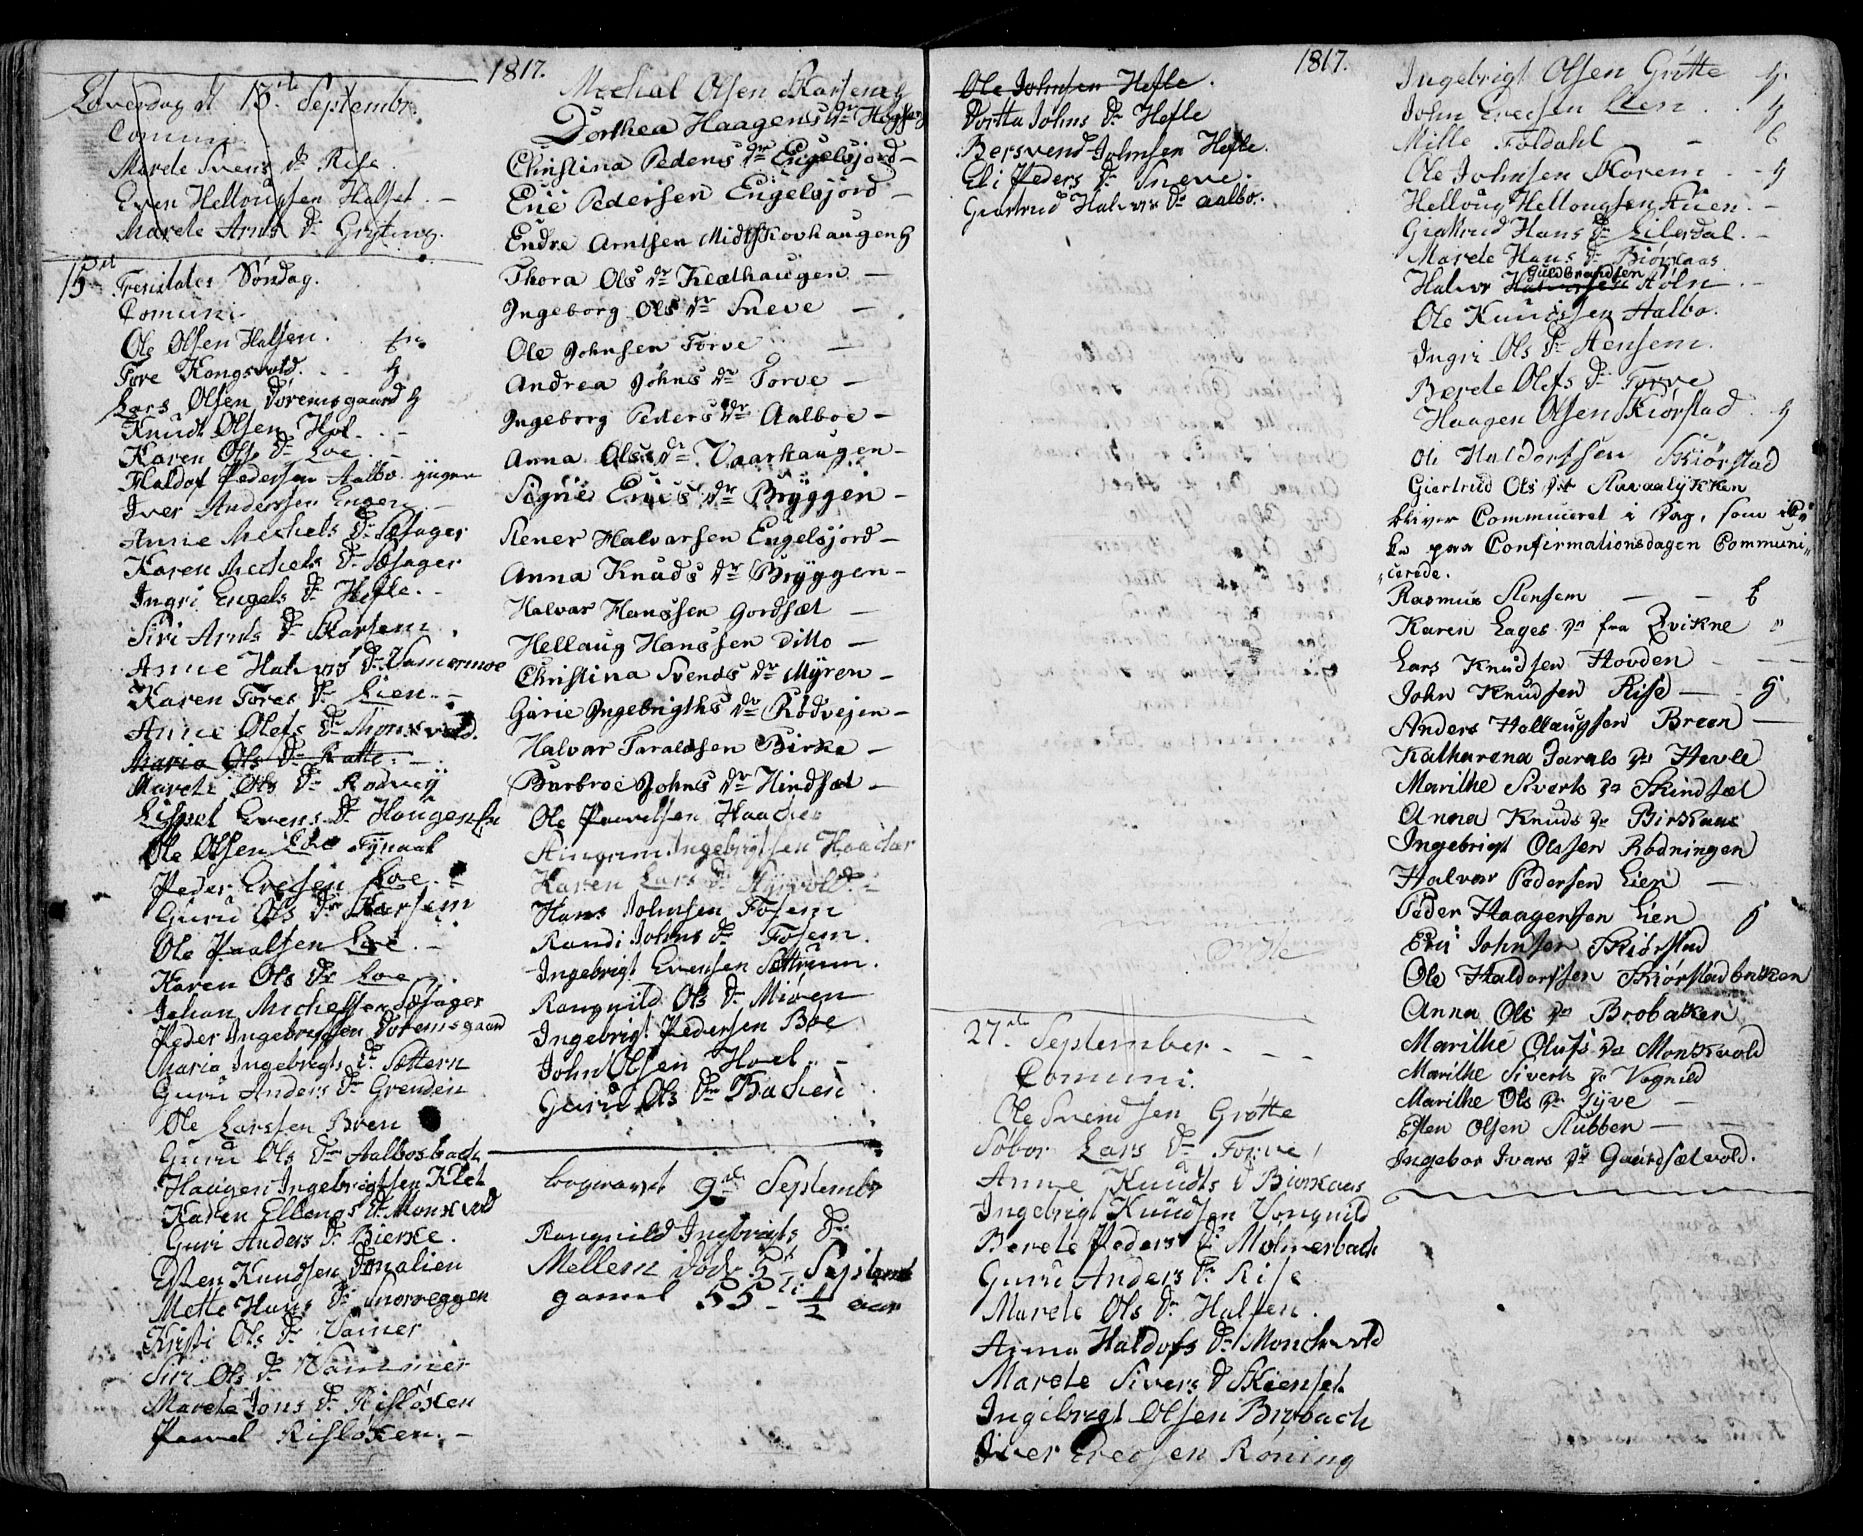 1817.
Löverdag d 13de Septembr.
Comuni
Marde Svens Dr Rise
Even Hellougsen Halset. -
Marete Arns Dr Gryting.
15de Tresidates Søndag.
Comuni
Ole Olsen Halsen.
Tore Kongsvold. h
Lars Olsen Doremsgaard h
Knudt Olsen Hol. -
Karen Ols Dr Loe -
Haldor Pedersen Aalbo yngere
Iver Anderssen Engen -
Anne Michels Dr Sæsager
Karen Michels Dr Sæsager
Ingri Engels Dr Hefle. -
Siri Arnts Dr Skorsem.
Anne Halvrs Dr Vamermoe
Karen Tores Dr Lien. -
Anne Olefs Dr Monsvold.
Maria Ols Dr Ratte. -
Mareti Ols Dr Rodvey
Lisbet Evens Dr Hougen
Ole Olsen Tynaal
Peder Evensen Loe. -
Guru Ols Dr Skorsem
Ole Paalsen Loe. -
Karen Ols Dr Loe
Johan Michelsen Sæsager
Peder Ingebrigtsen Doremsgaard
Maria Ingebrigts Dr Sættern
Guru Anders Dr Grenden
Ole Larssen Boen
Guru Ols Dr Aalbosbach
Haagen Ingebrigtsen Klet
Karen Ellengs Dr Monsvold
Guri Anders Dr Bierke.
Esten Knudsen Donalien
Mette Hans Dr Snoreggen
Kirsti Ols Dr Vamer
Siri Ols Dr Vammer
Marete Jons Dr Risløken
Paavel Risløken. -
Michal Olsen Skorsem h
Dorthea Haagens Dr
Christina Peders Dr Engelsjord -
Eric Pedersen Engelsjord -
Endre Arntsen Midtskovhaugen h
Thora Ols Dr Klæthaugen -
Ingeborg Ols Dr Sneve -
Ole Johnsen Torve -
Andrea Johns Dr Torve -
Ingeborg Peders Dr Aalboe -
Anna Ols Dr Vaarhaugen -
Signe Erics Dr Bryggen -
Stener Halvarsen Engelsjord -
Anna Knuds Dr Bryggen -
Halvar Hanssen Gordsæt -
Hellaug Hanssen Ditto -
Christina Svends Dr Myren -
Garie Ingebrigths Dr Rødvejen -
Halvar Taraldsen Birke -
Barbroe Johns Dr Hindsæt -
Ole Paavelsen Haacker
Steingrim Ingebrigtsen Haacker
Karen Lars Dr
Hans Johnsen Fosem
Randi Johns Dr Fosem.
Ingebrigt Evensen Sættrum.
Rangnild Ols Dr Mioen
Ingebrigt Pedersen Boe
John Olsen Hoel. -
Guru Ols Dr Bachen
begravet 9de Septembr
Rangnild Ingebrigts Dr
Mellem döde 5te Septembr
gamel 55 - 1/2 aar
1817.
Ole Johnsen Hefle.
Dortta Johns Dr Hefle
Bersvend Johnsen Hefle.
Eli Peders Dr Sneve.
Giertrud Halvrs Dr Aalbo.
27de September. - - -
Comuni.
Ole Svendsen Grøtte
Sobor Lars Dr Torve
Anne Knudts D Biørkaas
Ingebrigt Knudsen Vongnild
Berete Peders Dr Molmerbach
Guru Anders Dr Rise
Marete Ols Dr Halsen.
Anna Haldors Dr Monchvold
Marete Sivers D Skienset
Ingebrigt Olsen Brobach
Iver Evensen Röning
Ingebrigt Olsen Grøtte h.
John Evensen Lien. . h
Mille Foldahl -
Ole Johnsen Skorem. - h
Helloug Hellougsen Auen. -
Giertrud Hans Dr Lilerdal. -
Marete Hans Dr Biørkaas
Guldbrandsen
Halvor Halvorsen Aoln -
Ole Knudsen Aalbo.
Ingri Ols Dr Stensem.
Berete Olefs Dr Torve
Haagen Olsen Kiørstad. h
Ole Haldorssen Skiørstad
Giertrud Ols Dr Slavaalykken
bliver Communeret i Dag, som ik„
ke paa Confirmationsdagen Communi„
„cerede.
Rasmus Stensem - -
Karen Lages Dr fra Qvikne "
Lars Knudsen Hovden - -
John Knudsen Rise - - h
Anders Hallaugsen Breen -
Katharena Tarals Dr Hevle
Marithe Siverts Dr Skindsæt
Anna Knuds Dr Birkaas
Ingebrigt Olssen Rödningen
Halvar Pedersen Lien -
Peder Haagensen Lien h
Eric Johnsen Skiørstad
Ole Haldorssen Skiørstadbakken
Anna Ols Dr Brobakken
Marithe Olufs Dr Monkvold
Marithe Siverts Dr Vognild
Marithe Ols Dr Tyve -
Esten Olsen Stubben - -
Ingebor Ivars Dr Gaardsætvold.